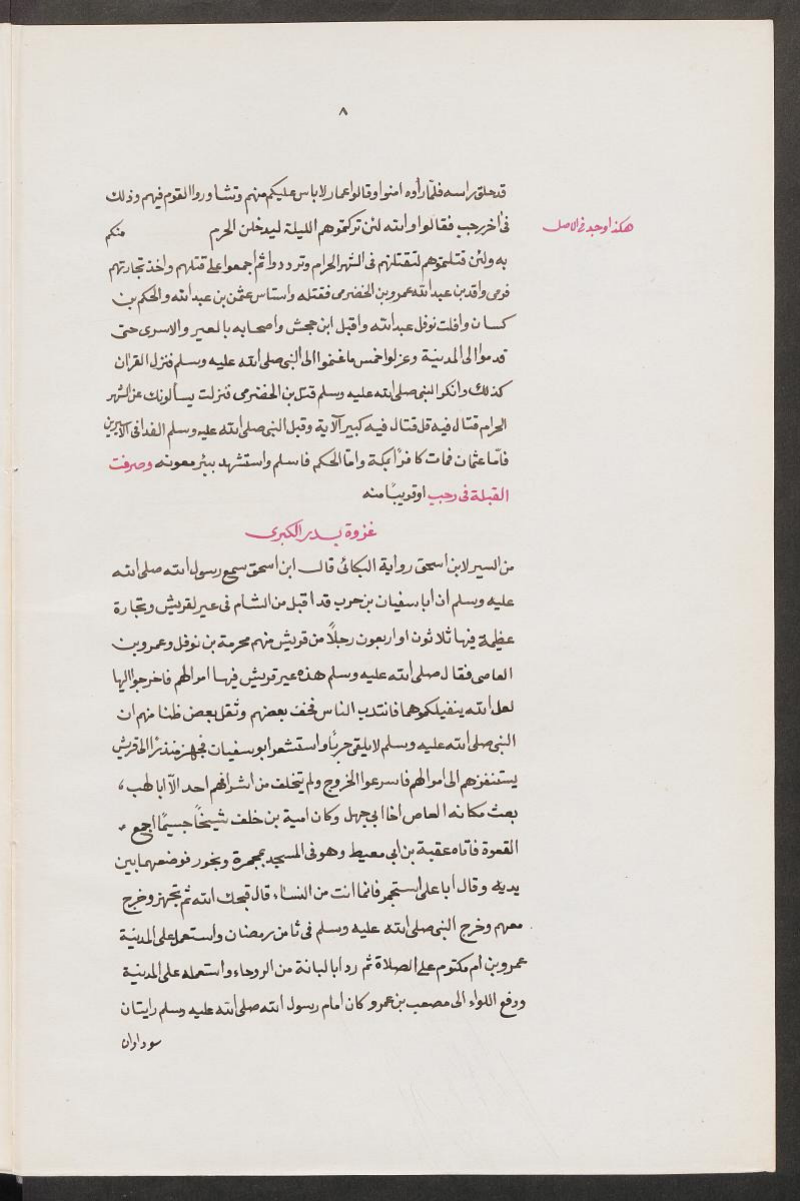 ٨
قد حلق راسه فلما رأوه امنوا وقالوا عمار لا باس عليكم منهم وتشاوروا القوم فيهم وذلك
فى آخر رجب فقالوا والله لئن تركتموهم الليلة ليدخلن الحرم منكم
هكذا وجد فى الاصل
به ولئن قتلتموهم لتقتلنهم فى الشهر الحرام وترددوا ثم اجمعوا على قتلهم واخذ تجارتهم
فرمى واقد بن عبد الله عمرو بن الحضرمى فقتله واستاسر عثمن بن عبد الله والحكم بن
كسان وافلت نوفل عبد الله واقبل ابن جحش واصحابه بالعير والاسرى حتى
قدموا الى المدينة وعزلوا خمس ما غنموا الى النبى صلى الله عليه وسلم فنزل القران
كذلك وانكر النبى صلى الله عليه وسلم قتل بن الحضرمى فنزلت يسألونك عن الشهر
الحرام قتال فيه قل قتال فيه كبير الآية وقبل النبى صلى الله عليه وسلم الفدا فى الاسيرين
فامّا عثمان فمات كافرًا بمكة وامّا الحكم فاسلم واستشهد ببئر معونه وصرفت
القبلة فى رجب او قريبًا منه
غزوة بدر الكبرى
من السير لابن اسحق رواية البكائى قال ابن اسحق سمع رسول الله صلى الله
عليه وسلم ان ابا سفيان بن حرب قد اقبل من الشام فى عير لقريش وتجارة
عظيمة فيها ثلاثون او اربعون رجلاً من قريش منهم مخرمة بن نوفل وعمرو بن
العاصى فقال صلى الله عليه وسلم هذه عير قريش فيها اموالهم فاخرجوا اليها
لعل الله ينفيلكموهما فانتدب الناس فخف بعضهم وثقل بعض ظنا منهم ان
النبى صلى الله عليه وسلم لا يلقى حربًا واستشعر ابو سفيان فجهز منذرًا الى قريش
يستنفزهم الى اموالهم فاسرعوا الخروج ولم يتخلف من اشرافهم احد الّا ابا لهب ،
بعث مكانه العاص اخا ابى جهل وكان امية بن خلف شيخًا جسيمًا اجمع
القعوة فاتاه عقبة بن ابى معيط وهو فى المسجد بمجمرة وبخور فوضعهما بين
يديه وقال ابا على استجمر فانما انت من النساء قال قبحك الله ثم تجهز وخرج
معهم وخرج النبى صلى الله عليه وسلم فى ثامن رمضان واستعمل على المدينة
عمرو بن ام مكتوم على الصلاة ثم رد ابا لبانة من الروحاء واستعمله على المدينة
ودفع اللواء الى مصعب بن عمرو كان امام رسول الله صلى الله عليه وسلم رايتان
سوداوان